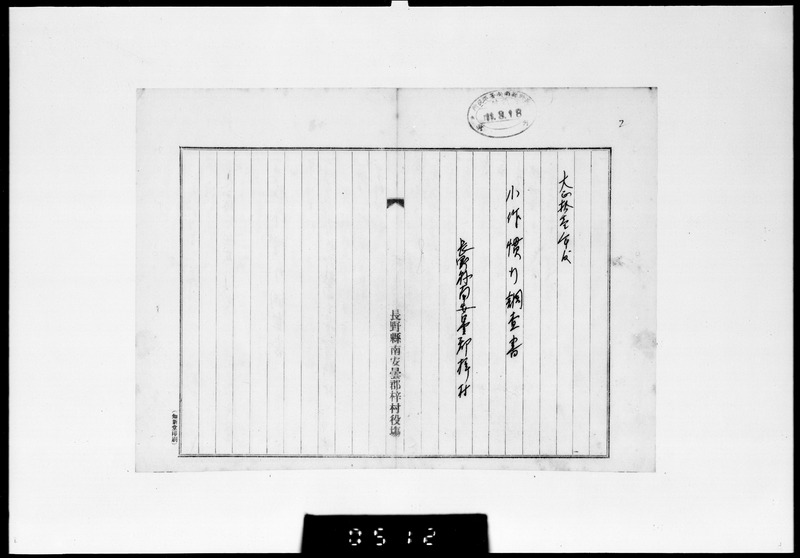 2
大正拾壱年度
小作慣行調査書
長野県南安曇郡梓村
長野縣南安曇郡梓村役場
11.9.18
0512